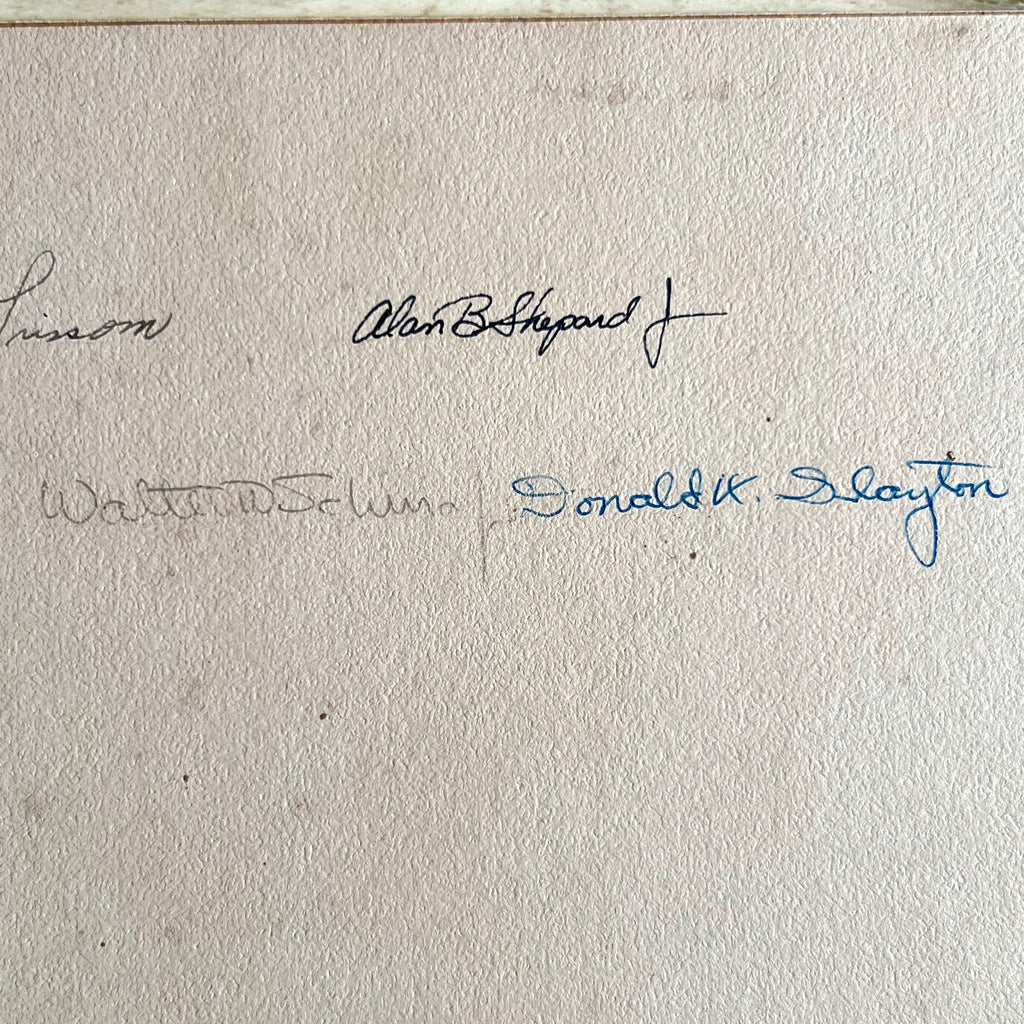 rissom Alan B Shepard Jr
Walter M Schirra Jr Donald K. Slayton